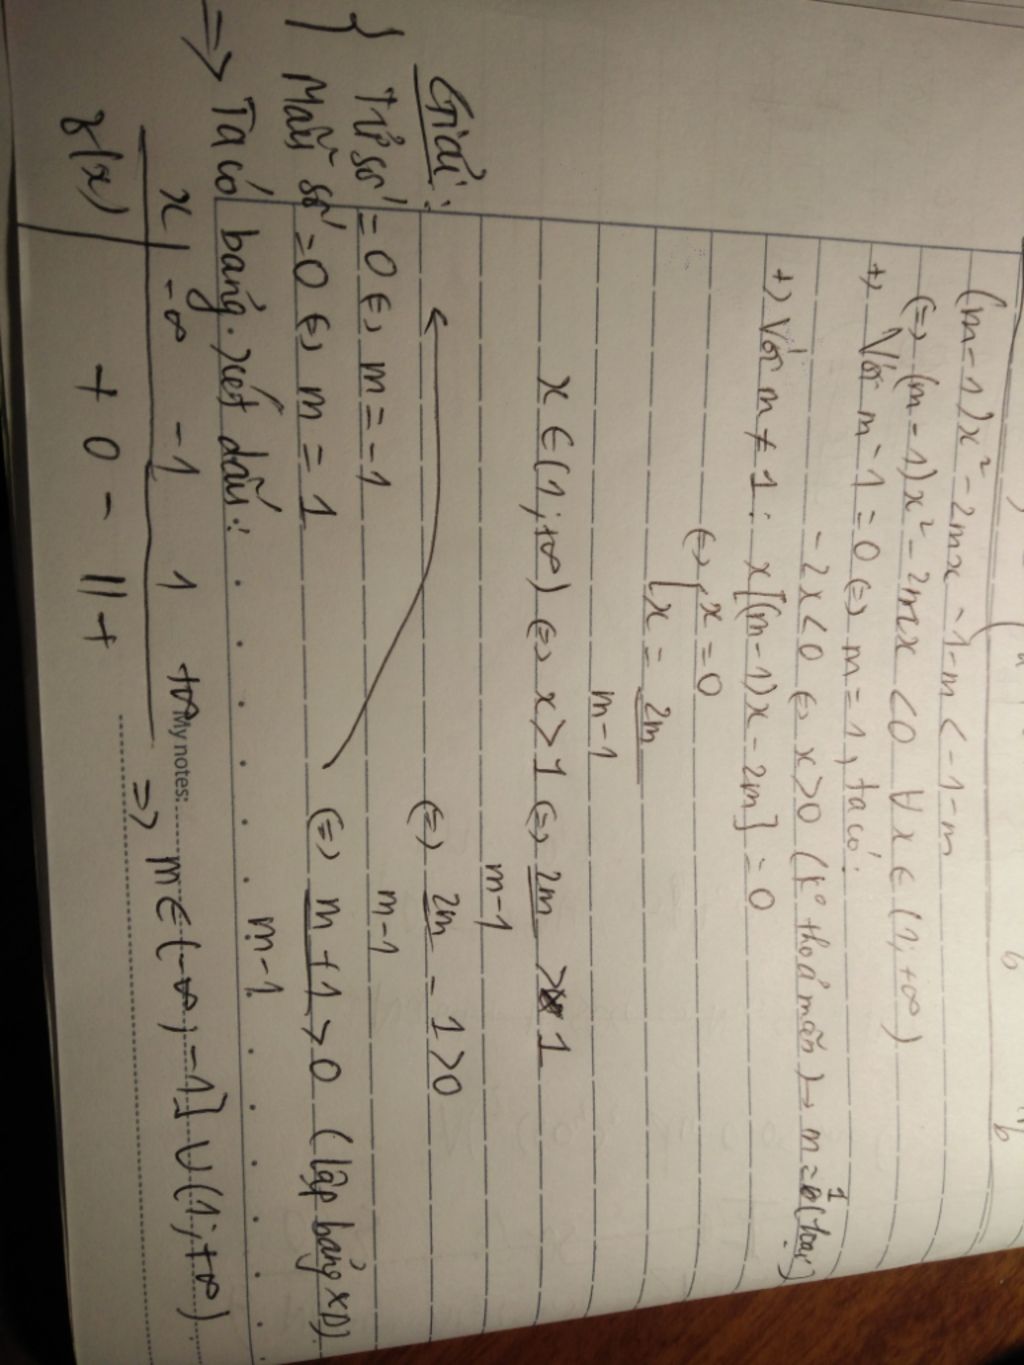 (m-1)x² - 2mx - 1-m < -1-m
(=) (m-1)x² - 2mx < 0 ∀x ∈ (1; +∞)
+) Với m-1 = 0 (=) m = 1, ta có:
-2x < 0 (=) x > 0 (k° thoả mãn) → m = 1 (loại)
+) Với m ≠ 1: x[(m-1)x - 2m] = 0
(=) [ x = 0
[ x = 2m/m-1
x ∈ (1; +∞) (=) x > 1 (=) 2m/m-1 > 1
(=) 2m/m-1 - 1 > 0
(=) m+1/m-1 > 0 (lập bảng XD)
Giải:
{ Tử số = 0 (=) m = -1
Mẫu số = 0 (=) m = 1
=> Ta có bảng xét dấu:
x | -∞ -1 1 +∞
My notes:
+ 0 - || +
=> m ∈ (-∞; -1] ∪ (1; +∞)